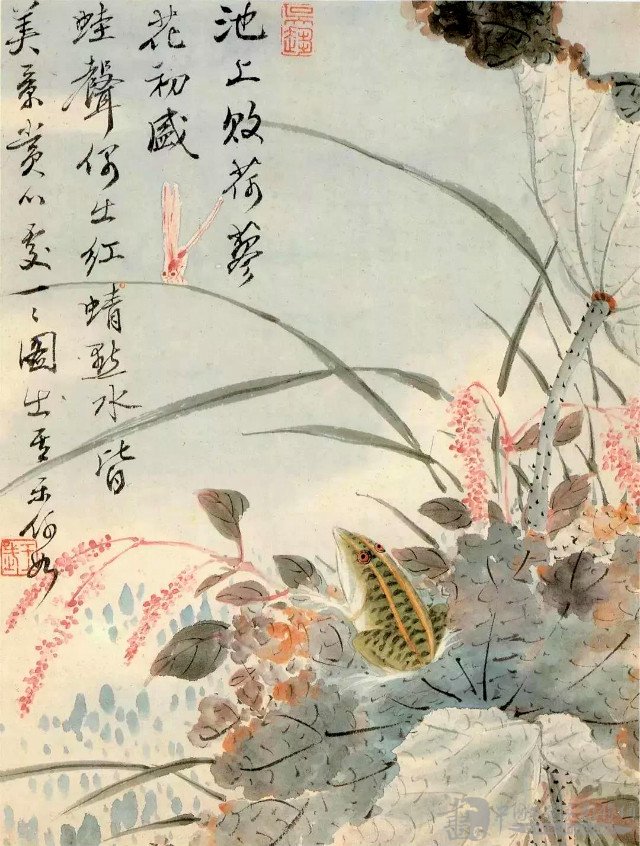 池上敗荷蓼
花初盛
蛙聲偶出紅蜻點水皆
美景賞心處一々圖出樂何如